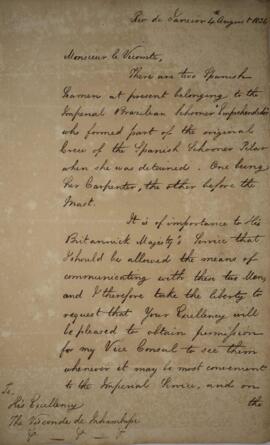 Rio de Janeiro 4th August 1826
Monsieur le Vicomte,
There are two Spanish
Seamen at present belonging to the
Imperial Brazilian Schooner
who formed part of the original
Crew of the Spanish Schooner Pilar
when she was detained. One being
her Carpenter, the other before the
Mast.
It is of importance to His
Britannick Majesty's Service that
I should be allowed the means of
communicating with these two Men,
and I therefore take the liberty to
request that Your Excellency will
be pleased to obtain permission
for my Vice Consul to see them
whenever it may be most convenient
to the Imperial Service, and on
the
To,
His Excellency
The Visconde de Inhambupe